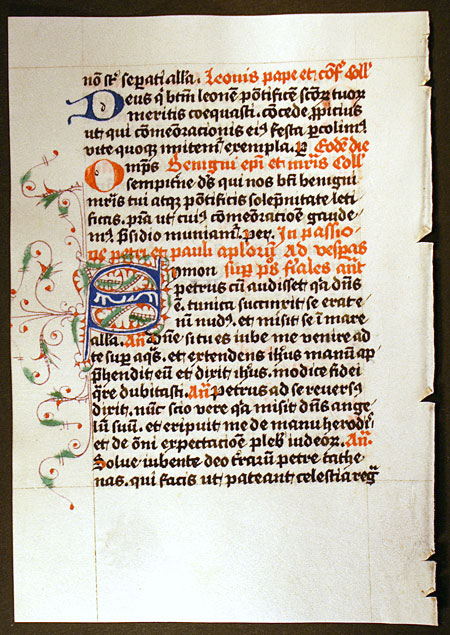 nō sūt sepati alla. Leonis pape et cōf Coll
Deus q btm leonem pōtificē scōr tuor
meritis coequasti. cōcede ppicius
ut qui cōmeōrationis eiꝯ festa pcolimꝯ
vite quoqꝫ imitemˀ exempla. p Eodē die
Omps Benigni epī et mris Coll
sempiterne ds qui nos bti benigni
mris tui atqꝫ pōtificis solēpnitate leti
ficas. pra ut cuiꝯ cōmeōratiōe gaude
mꝯ psidio muniamˀ. per. In passio
ne petri et pauli aplorū Ad vespas
Symon sup ps fiales ant
petrus cū audisset qa dnš
ē. tunica succinxit se erat e
nī nudꝯ. et misit se ī mare
alla. An Dne si tu es iube me venire ad
te sup aqs. et extendens ihsus manū ap
phendit eū et dixit ihsus. modice fidei
qre dubitasti. An Petrus ad se reversꝯ
dixit. nūc scio vere qa misit dns ange
lū suū. et eripuit me de manu herodis
et de ōni expectatiōe pleb iudeor. An
Solve iubente deo trarū petre cathe
nas. qui facis ut pateant celestia reg